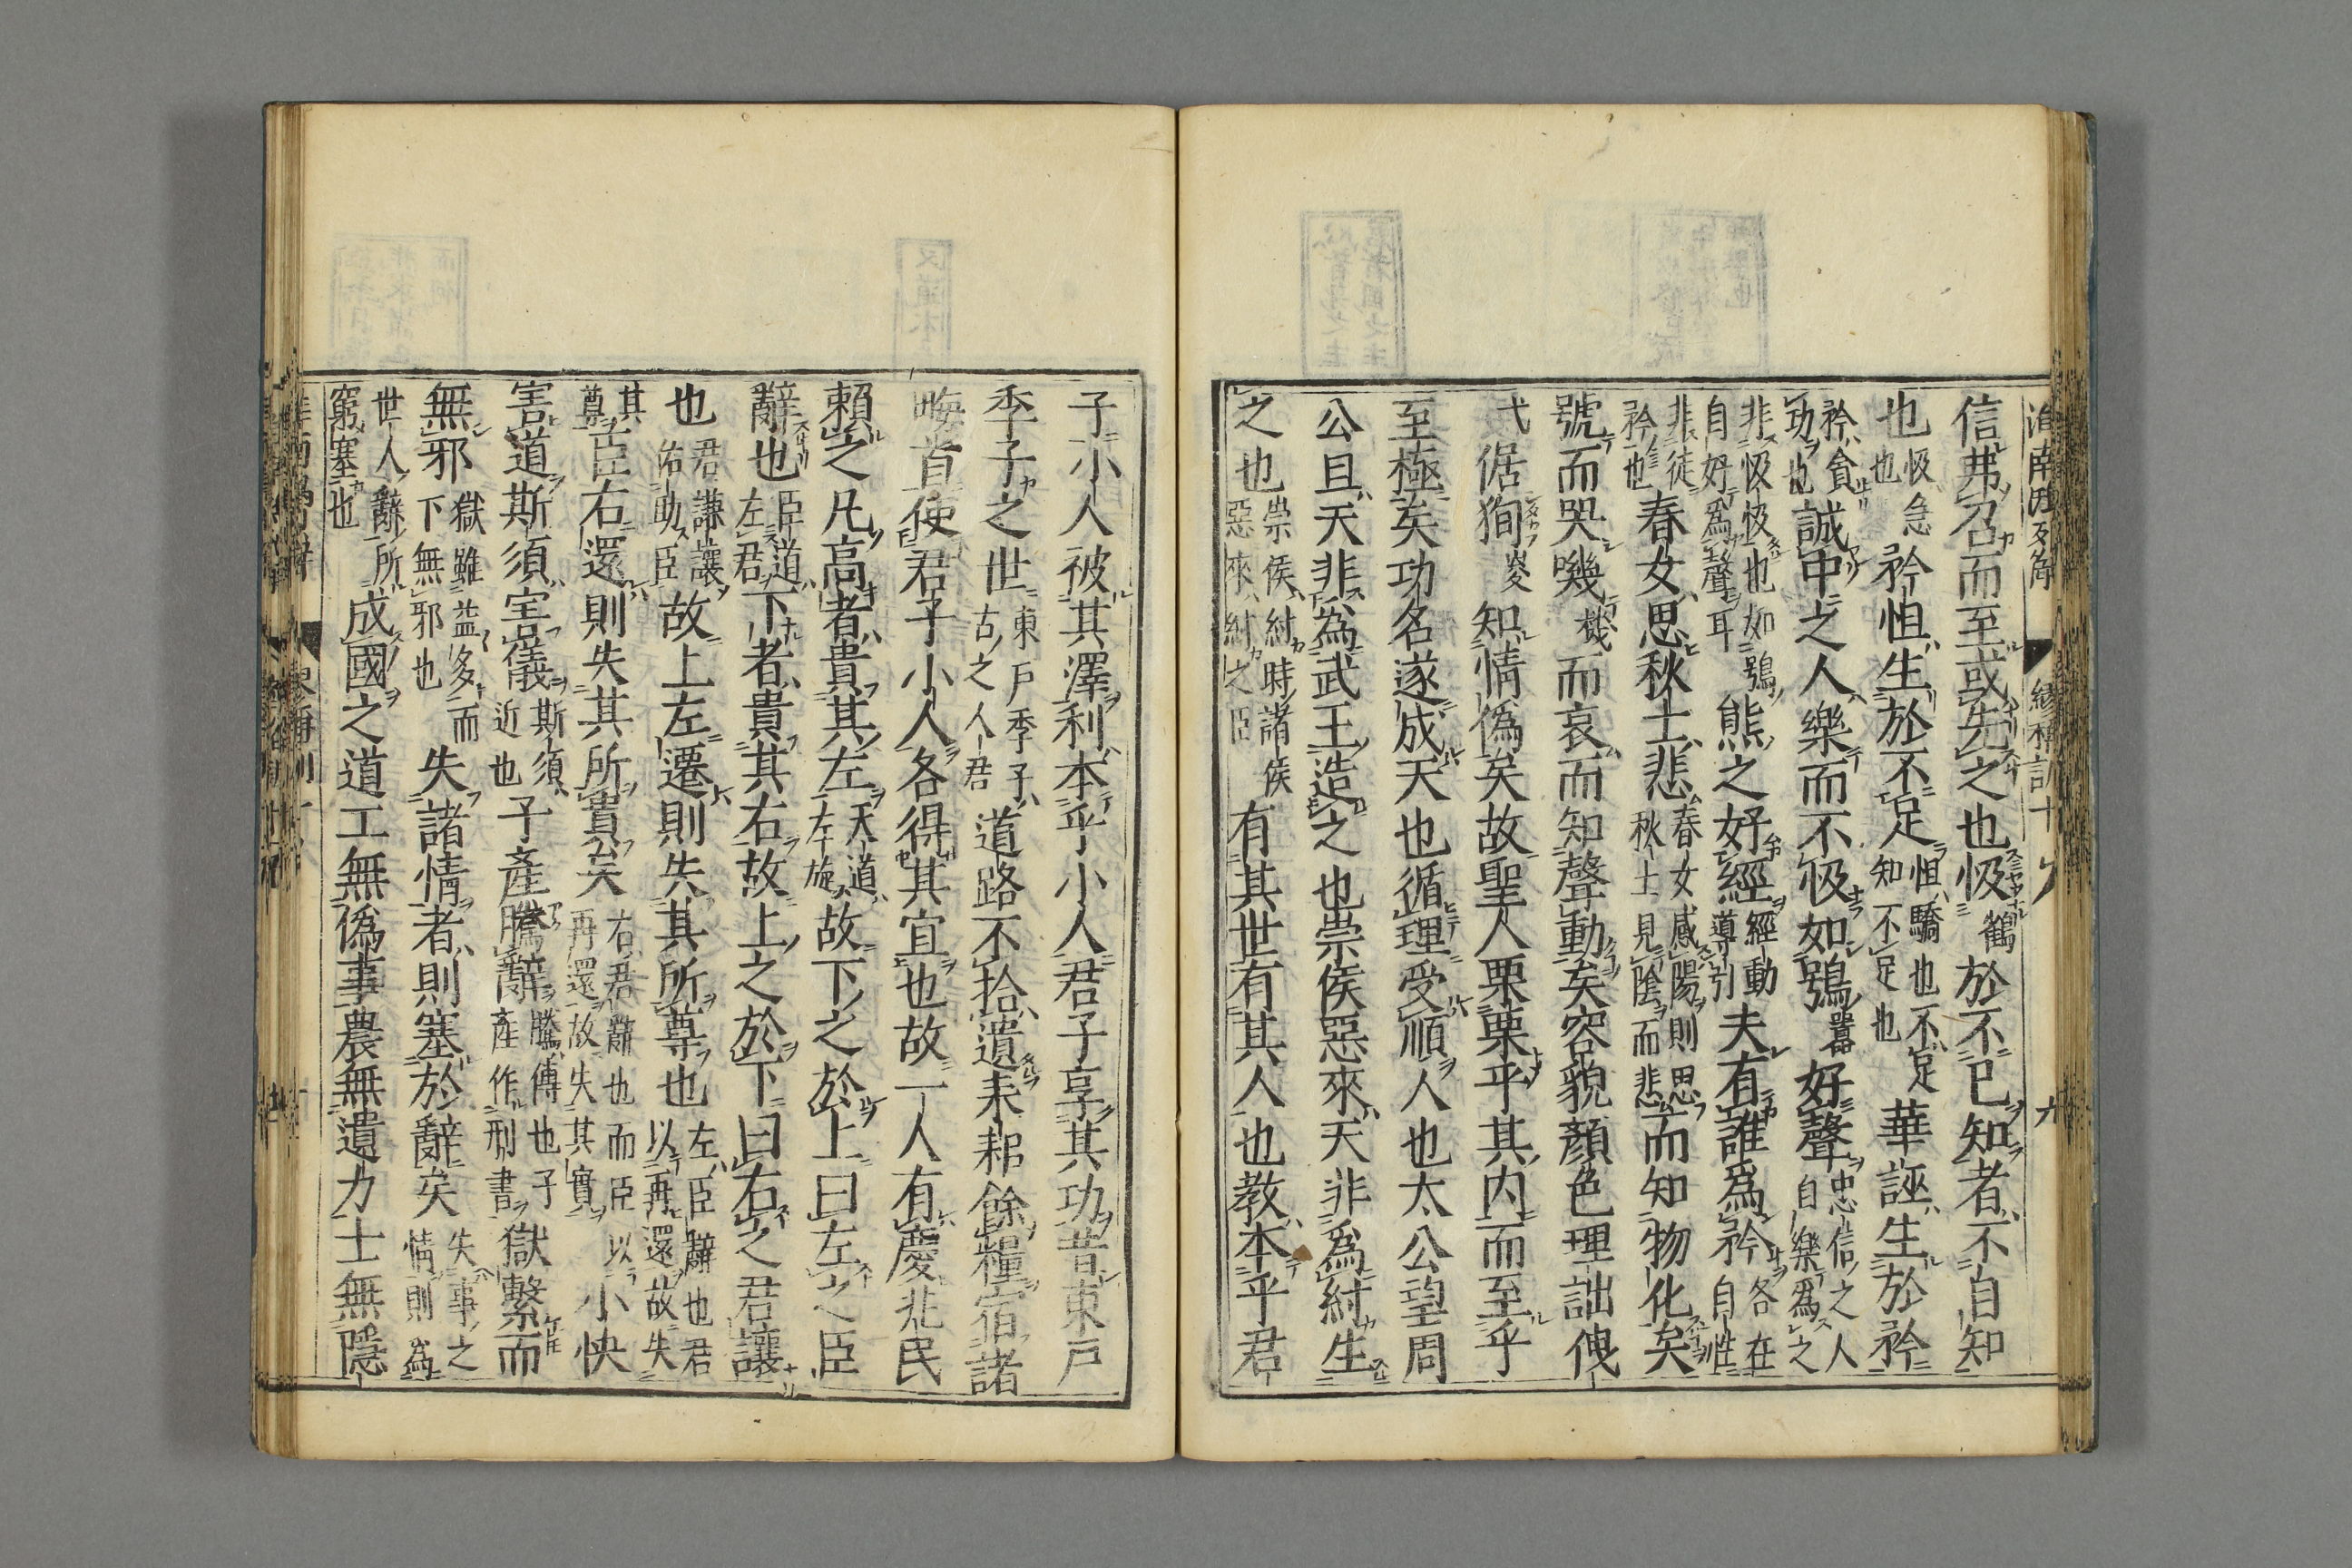 信弗召而至或先之也伋鶴於不已知者不自知
也伋急也矜怛生於不足怛驕也不足知不足也華誣生於矜
矜貪功也誠中之人樂而不伋如鴞囂好聲忠信之人自樂爲之
非伋伋也如鴞自好爲聲耳熊之好經經動導引夫有誰爲矜各在自性
非徒矜也春女思秋士悲春女感陽則思秋士見陰而悲而知物化矣
號而哭嘰機而哀而知聲動矣容貌顏色理詘傀
弋倨狥夋知情僞矣故聖人栗栗乎其內而至乎
至極矣功名遂成天也循理受順人也太公望周
公旦天非爲武王造之也崇侯惡來天非爲紂生
之也崇侯紂時諸侯惡來紂之臣有其世有其人也教本乎君
子小人被其澤利本乎小人君子享其功昔東戸
季子之世東戸季子古之人君道路不拾遺耒耜餘糧宿諸
晦首使君子小人各得其宜也故一人有慶兆民
賴之凡高者貴其左天道左旋故下之於上曰左之臣
辭也臣道左君下者貴其右故上之於下曰右之君讓
也君謙讓佑助臣故上左遷則失其所尊也左臣辭也君以再還故失
其尊臣右還則失其所貴矣右君辭也而臣以再還故失其實小快
害道斯須害儀斯須近也子產騰辭騰傳也子產作刑書獄繫而
無邪獄雖益多而下無邪也失諸情者則塞於辭矣失事之情則爲
世人辭所窮塞也成國之道工無僞事農無遺力士無隱